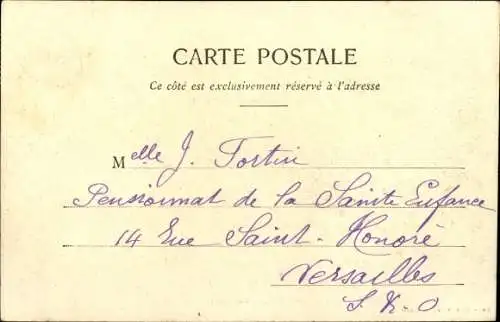 CARTE POSTALE
Ce côté est exclusivement réservé à l'adresse
Melle J. Fortin
Pensionnat de la Sainte Enfance
14 Rue Saint-Honoré
Versailles
S. & O.